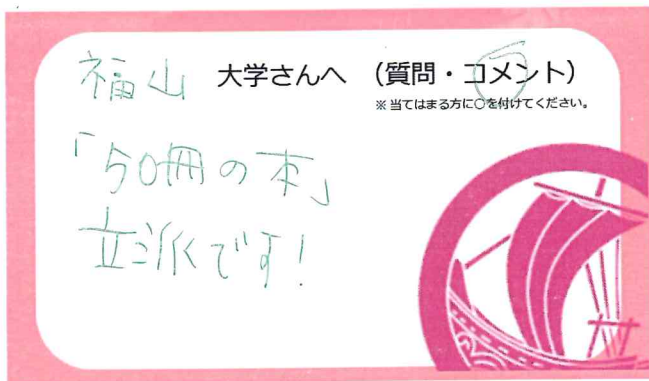 福山 大学さんへ (質問・コメント)
※ 当てはまる方に○を付けてください。
「50冊の本」
立派です!